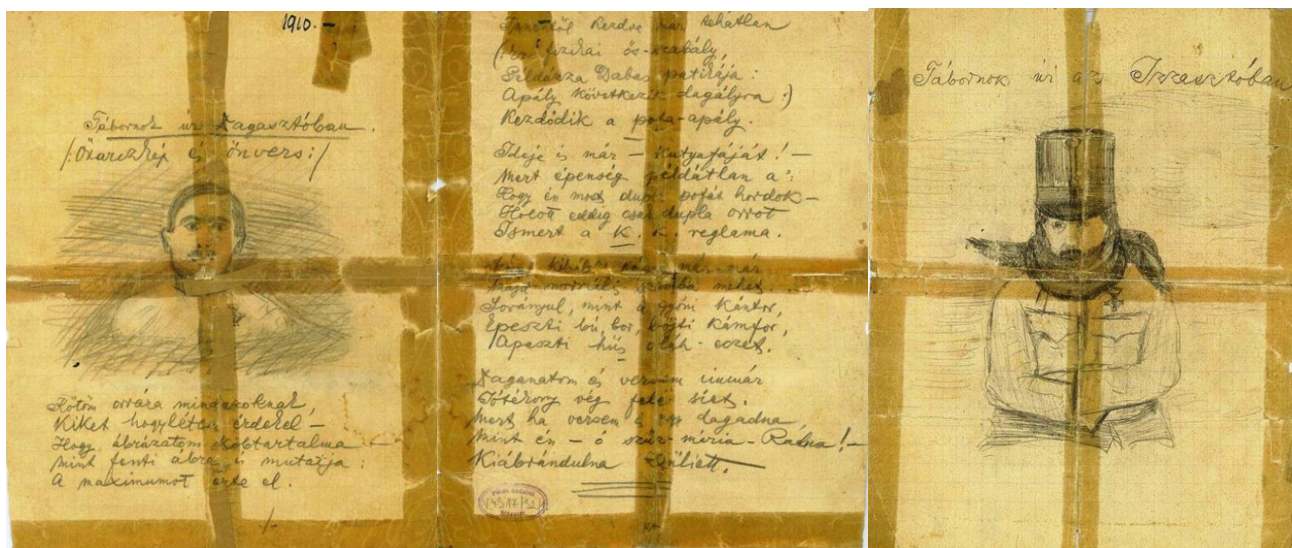 1910.-
Tábornok úr Dagasztóban.
/:Őxarczkép és önvers:/
Kötöm orrára mindazoknak,
Kiket hogylétem érdekel -
Hogy ábrázatom köbtartalma -
Mint fenti ábra is mutatja:
A maximumot érte el.
./.
kezdve már
(:Ez fizikai ős-szabály,
Példázza Dabas patikája:
Apály következik dagályra:)
Kezdődik a pofa-apály.
Ideje is már - Kutyafáját! -
Mert épenség példátlan a':
Hogy én most dupla pofát hordok -
Holott eddig csak dupla orrot
Ismert a K. K. reglama.
már-már
normális
Soványul, mint a gyóni Kántor,
Epeszti bú, bor, böjti Kámfor,
Apasztja hűs oláh-eczet.
Daganatom és versem immár
vég felé siet.
Mert ha versem is dagadna,
Mint én - ó szűz-mária-Radna! -
Kiábrándulna Juliett.
Tábornok úr az Izzasztóban